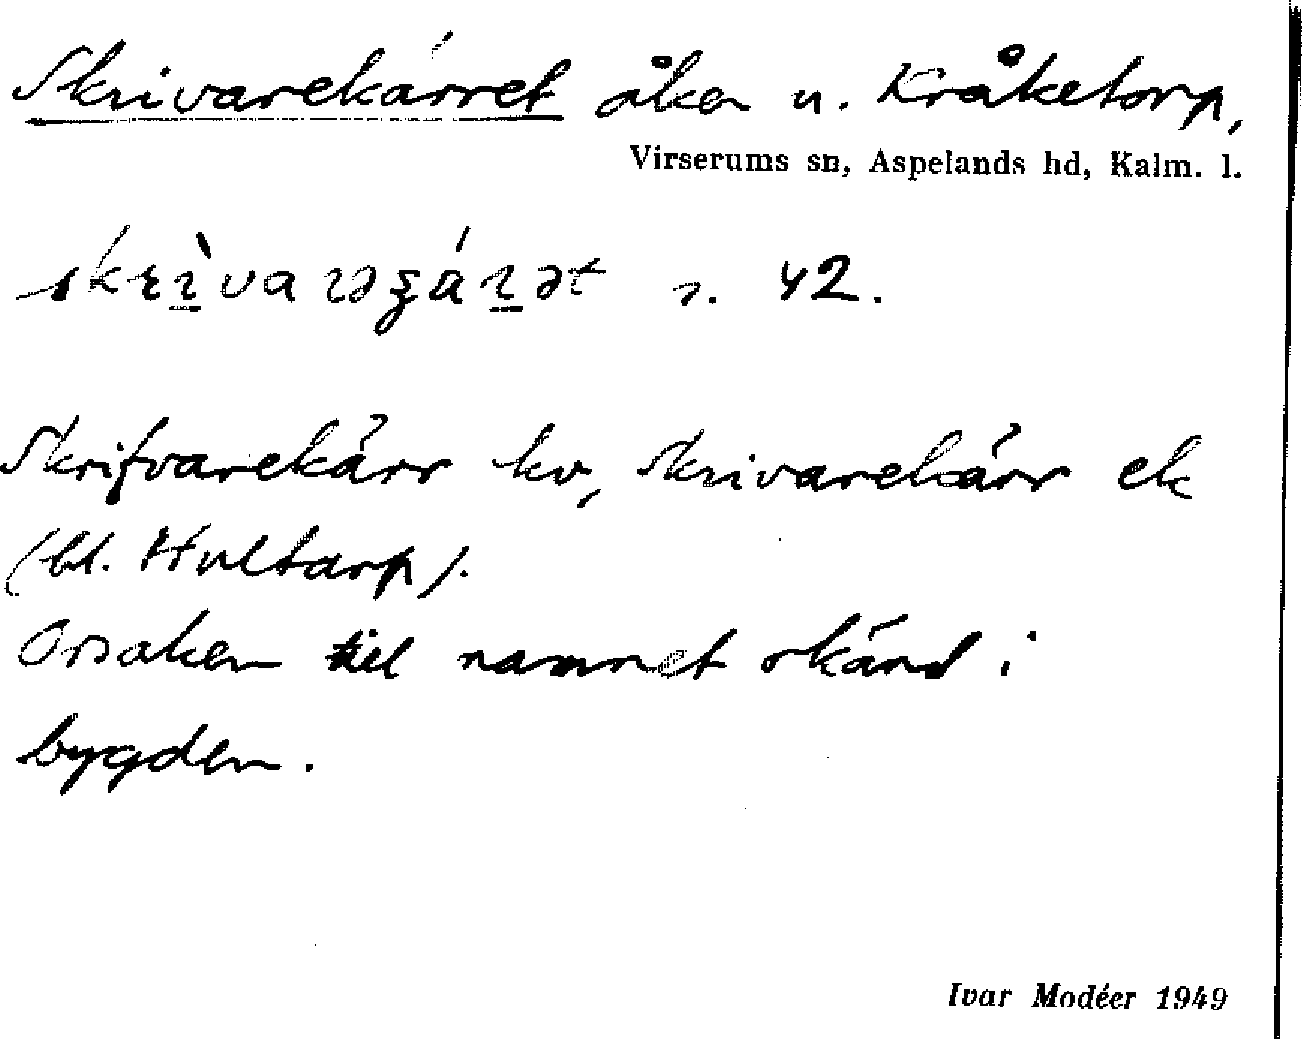 Skrivarekärret åker u. Kråketorp,
Virserums sn, Aspelands hd, Kalm. l.
n. 42.
Skrifvarekärr kv, Skrivarekärr ek
(bl. Hultarp).
Orsaken till namnet okänd i
bygden.
Ivar Modéer 1949